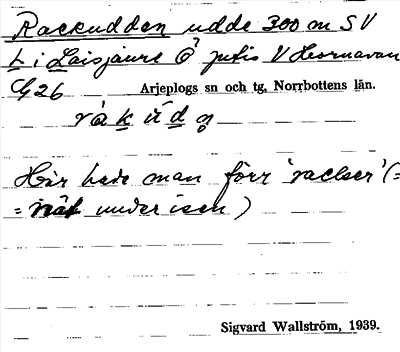 Rackudden udde 300 m SV
L i Laisjaure Ö jutis V Hornavan
G26 Arjeplogs sn och tg, Norrbottens län.
Här lade man förr 'rackor' (=
= nät under isen)
Sigvard Wallström, 1939.